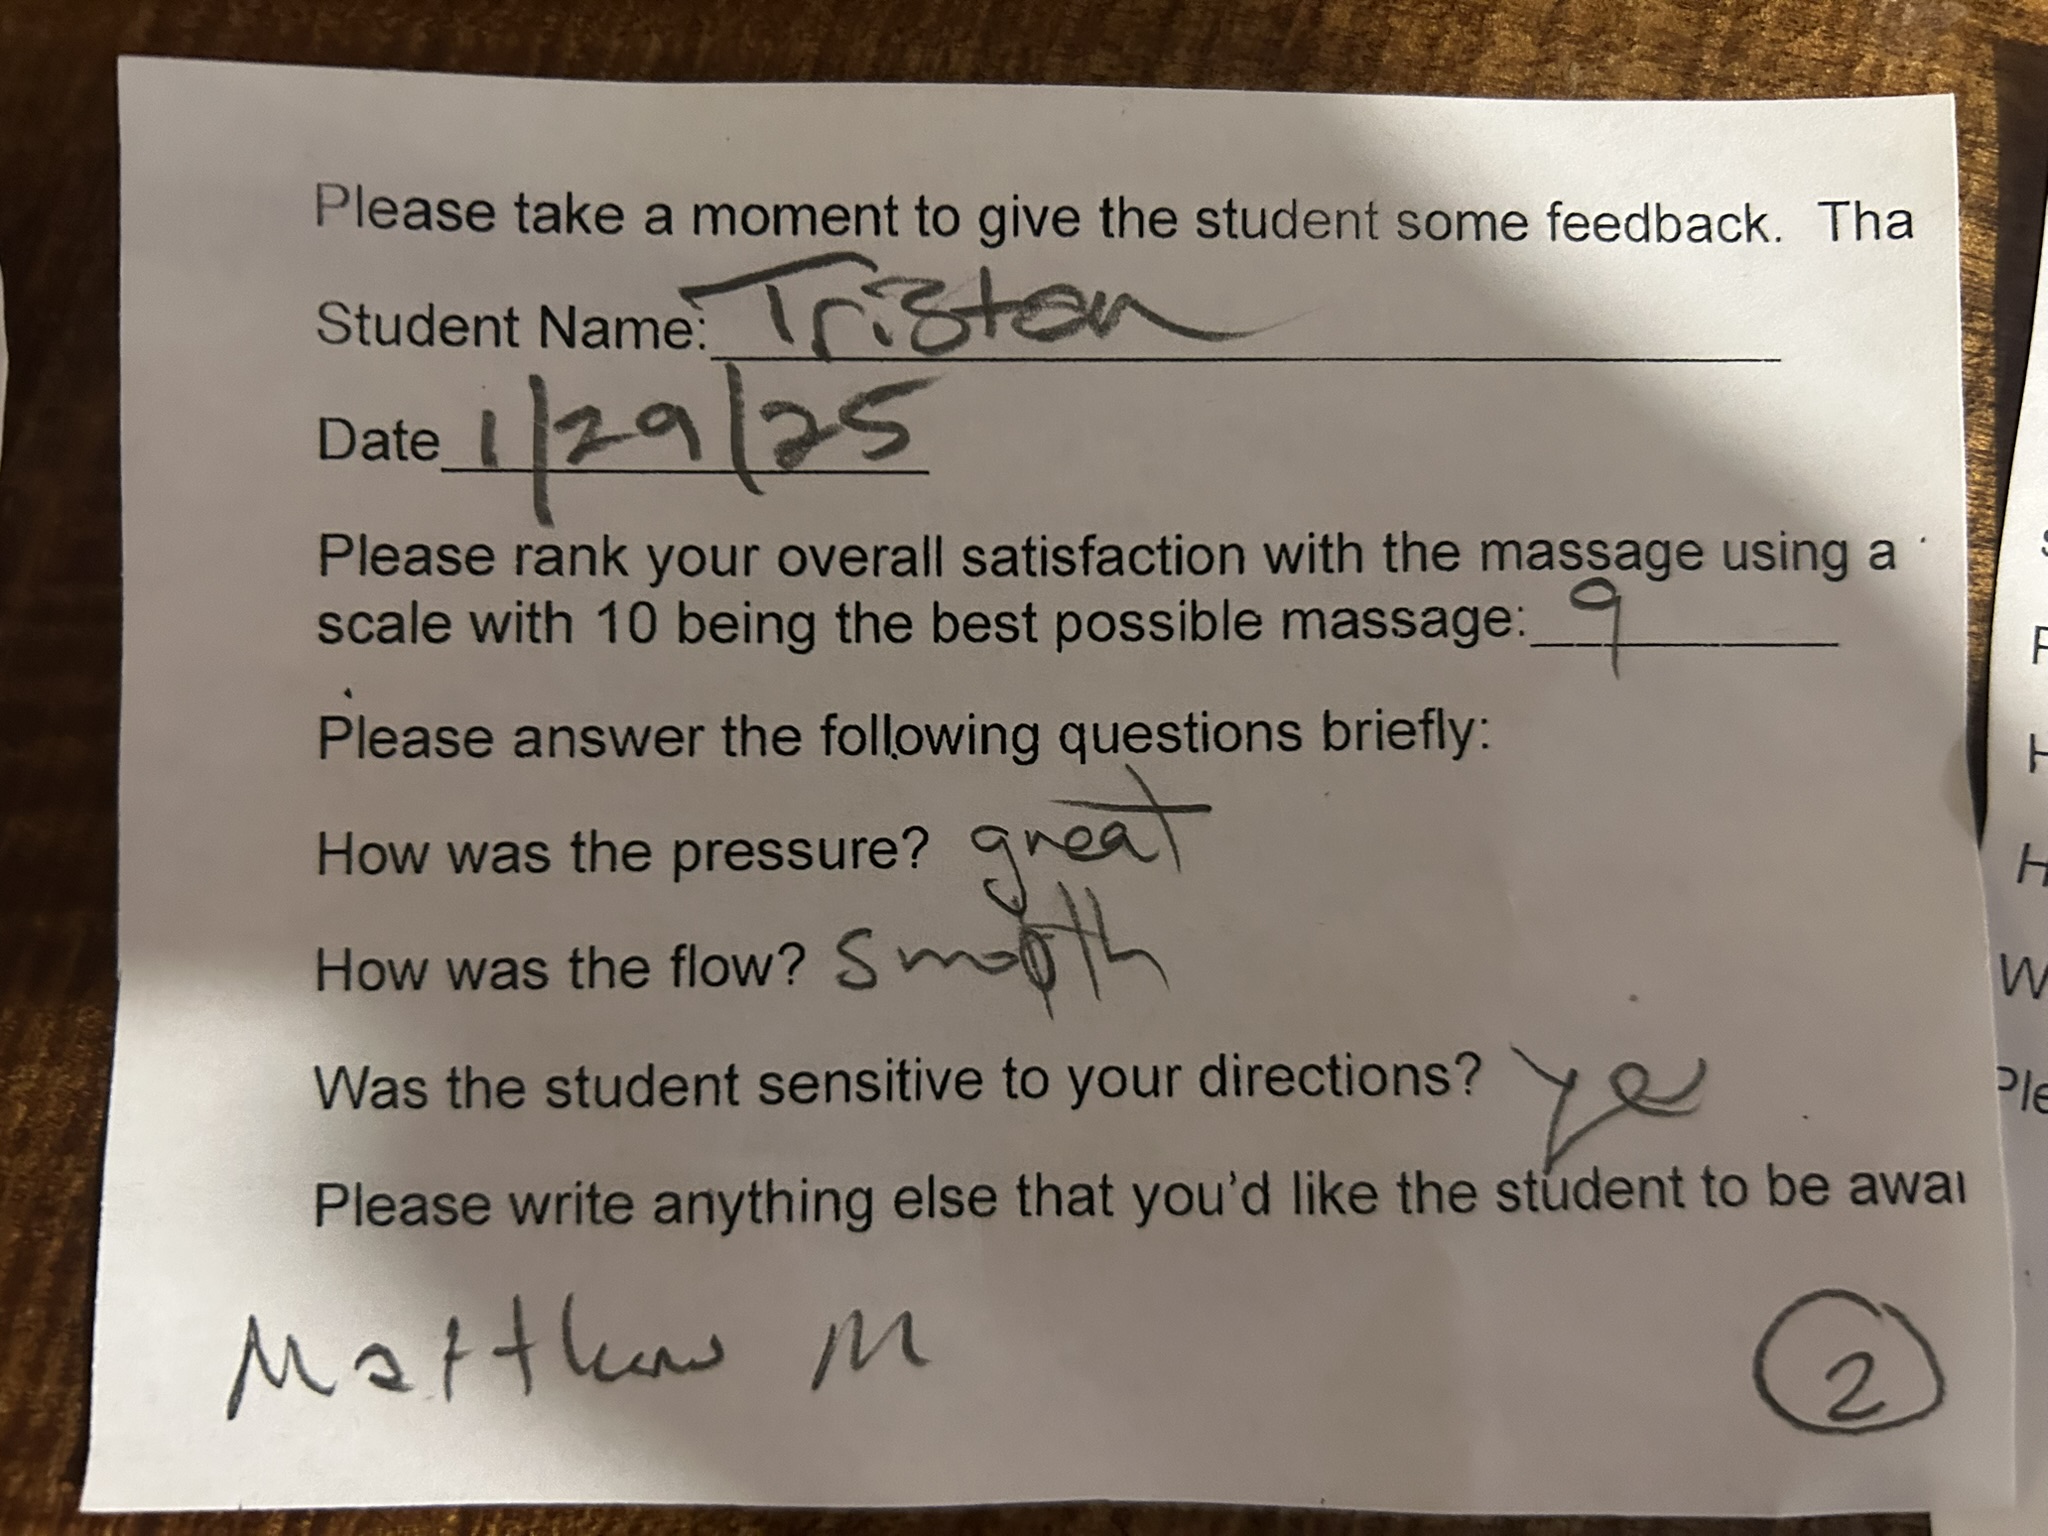 Please take a moment to give the student some feedback. Tha
Student Name: Tristan
Date 1/29/25
Please rank your overall satisfaction with the massage using a
scale with 10 being the best possible massage: 9
Please answer the following questions briefly:
How was the pressure? great
How was the flow? Smooth
Was the student sensitive to your directions? yes
Please write anything else that you'd like the student to be awar
Matthew M
2
W
Ple